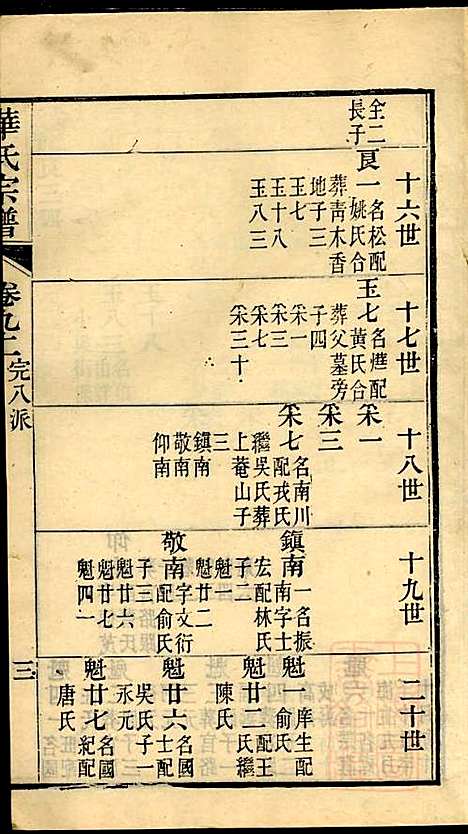 全二
長子
十六世
良一名松配
姚氏合
葬靑木香
地子三
玉七
玉十八
玉八三
十七世
玉七名𤐣配
黃氏合
葬父墓旁
子四
釆一
釆三
釆七
釆三十
十八世
釆一
釆三
釆七名南川
配戎氏
繼吳氏葬
上菴山子
三
鎮南
敬南
仰南
十九世
鎮南一名振
南字士
宏配林氏
子二
魁一
魁廿二
敬南字文衍
配俞氏
子三
魁廿六
魁廿七
魁四一
二十世
魁一庠生配
俞氏
魁廿二配王
氏繼
陳氏
魁廿六名國
士配
吳氏子一
永元
魁廿七名國
紀配
唐氏
華氏宗譜
卷九二
完八派
三